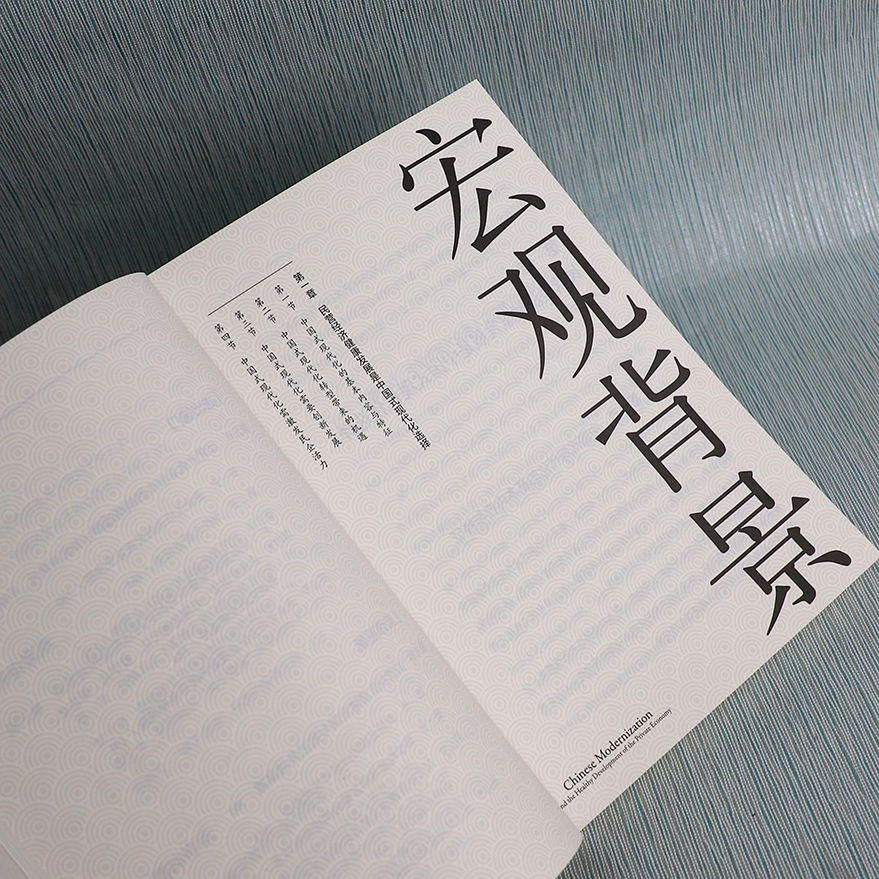 宏观背景
第一章 民营经济健康发展是中国式现代化选择
第一节 中国式现代化的基本内容与特征
第二节 中国式现代化转型带来的机遇
第三节 中国式现代化需要创新发展
第四节 中国式现代化需激发民企活力
Chinese Modernization
nd the Healthy Development of the Private Economy